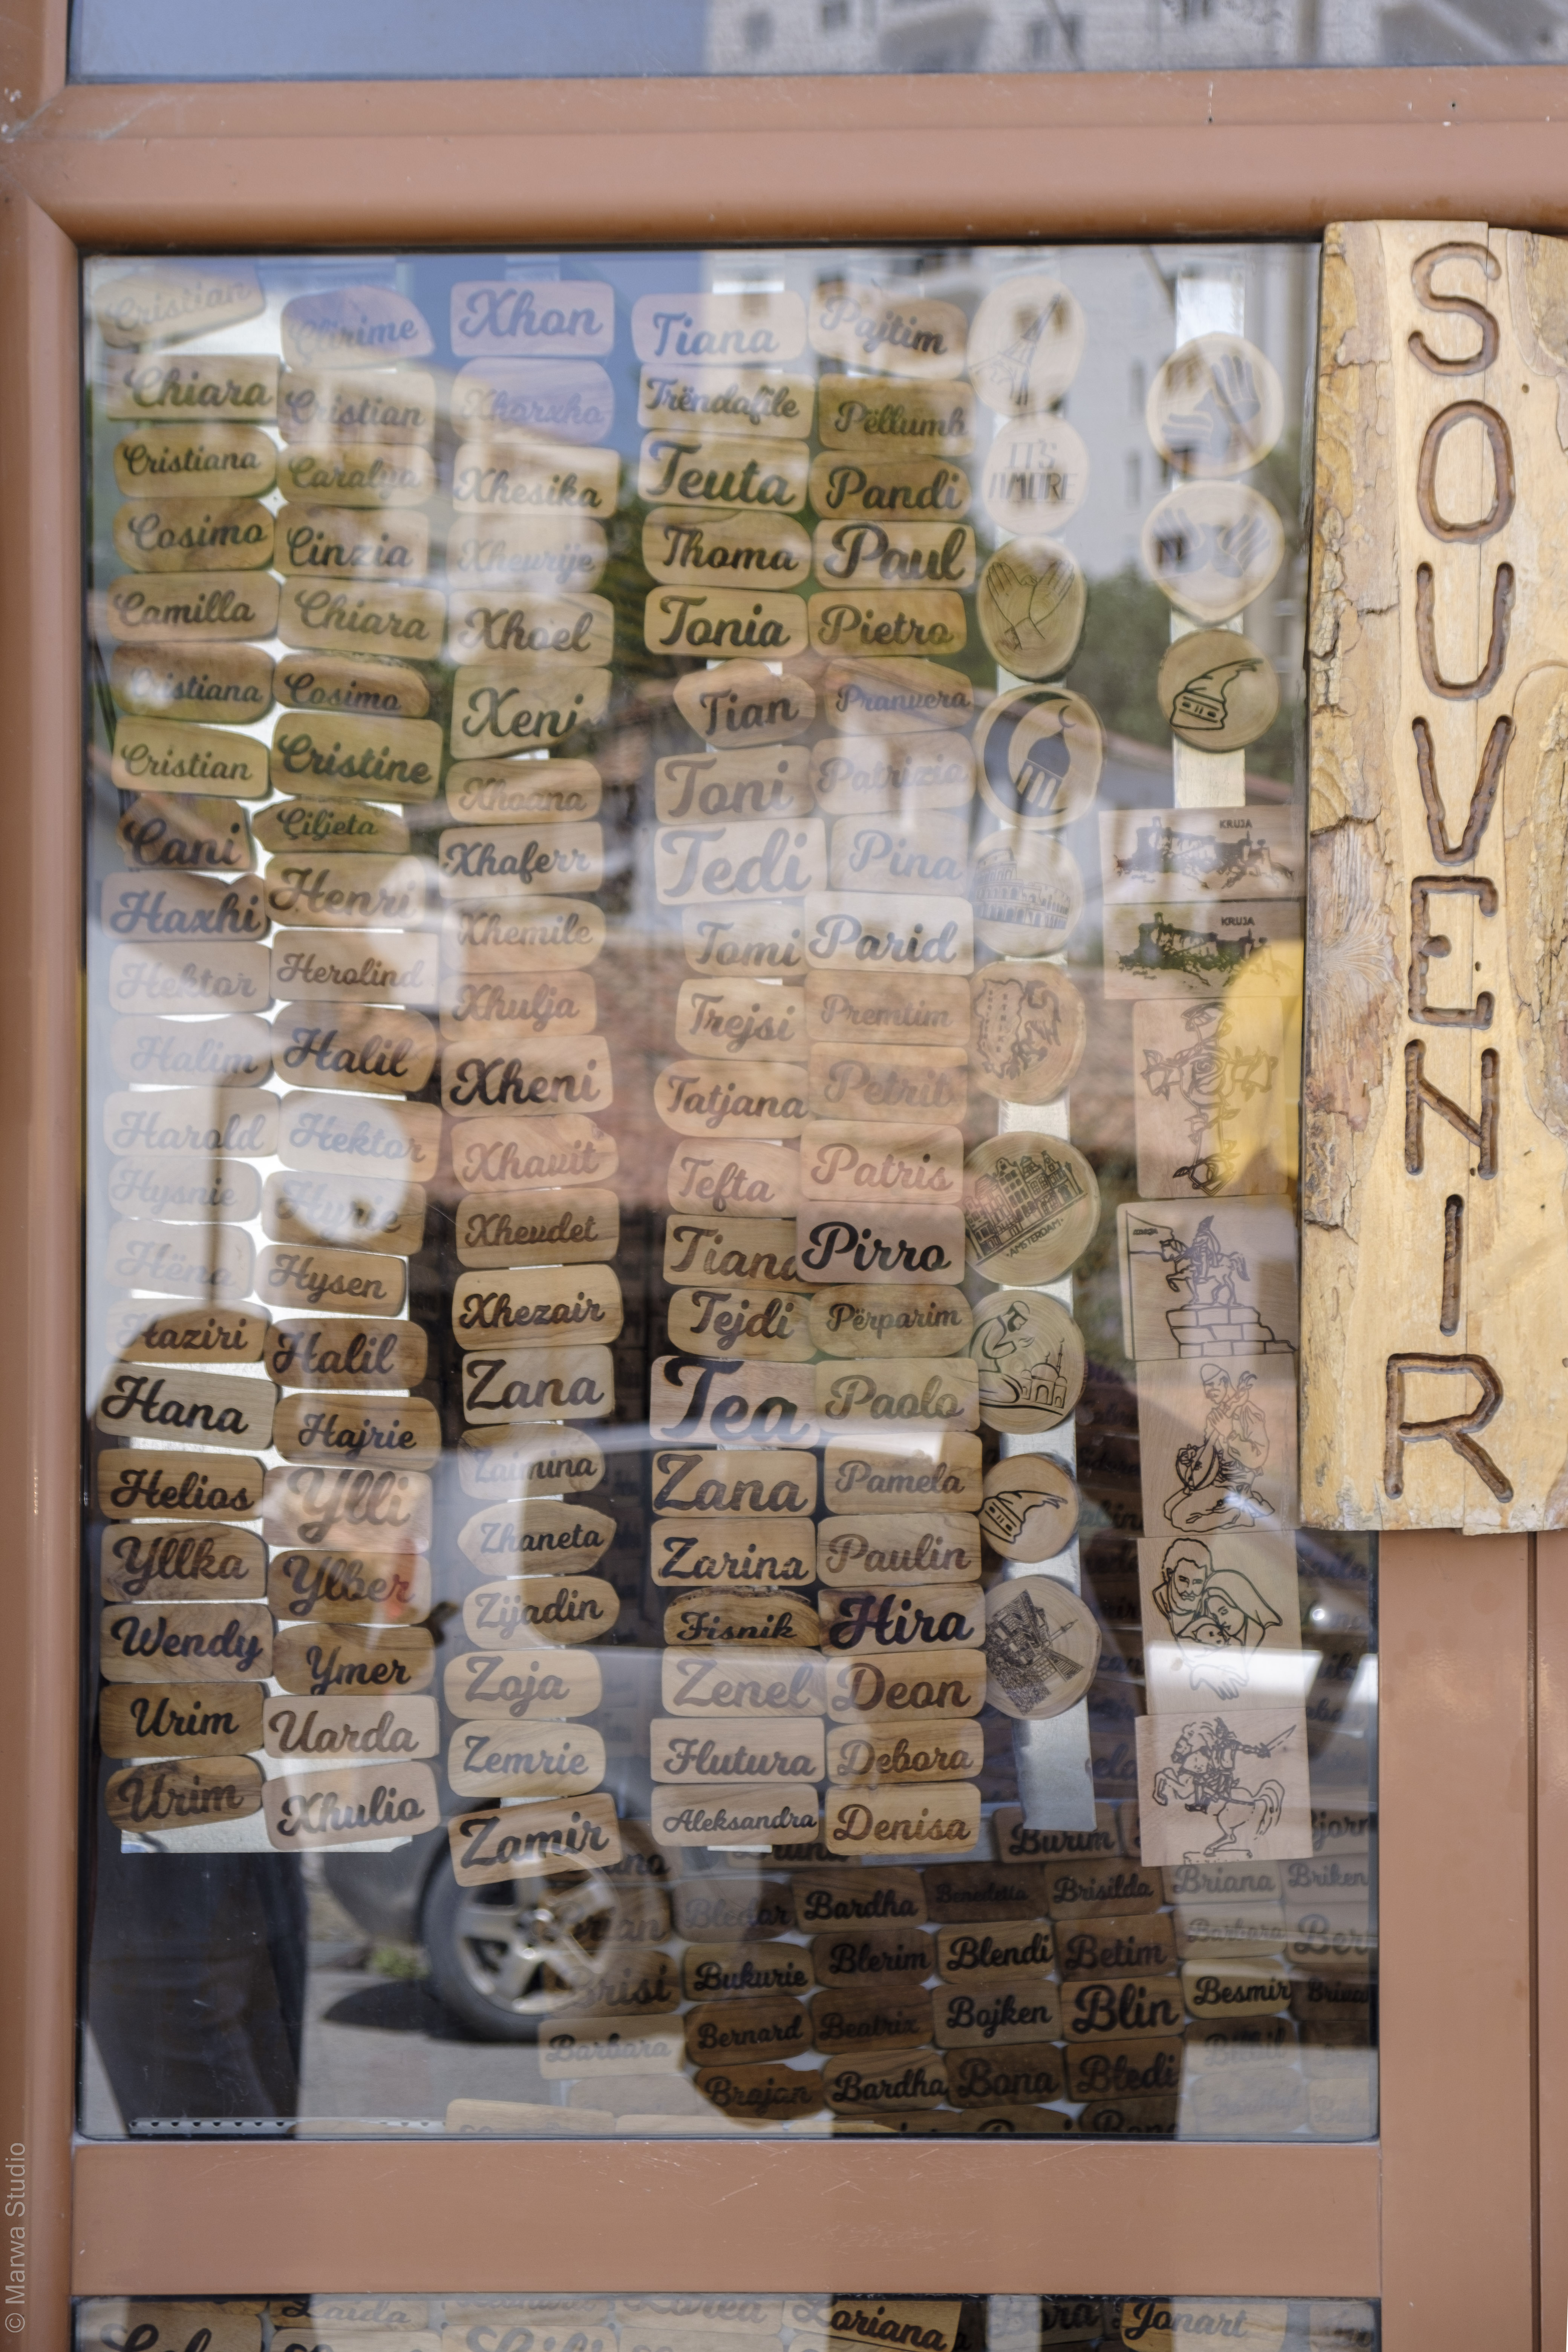 Cristian
Chiara
Cristiana
Cosimo
Camilla
Cristiana
Cristian
Cani
Haxhi
Hektor
Halim
Harold
Hysnie
Hëna
Haziri
Hana
Helios
Yllka
Wendy
Urim
Urim
Cristian
Cinzia
Chiara
Cosimo
Cristine
Çiljeta
Henri
Herolind
Halil
Hektor
Hyrie
Hysen
Halil
Hajrie
Ylli
Ylber
Ymer
Uarda
Xhulio
Xhon
Xhorxho
Xhesika
Xhevrije
Xhoel
Xeni
Xhoana
Xhaferr
Xhemile
Xhulja
Xheni
Xhavit
Xhevdet
Xhezair
Zana
Zhaneta
Zijadin
Zoja
Zemrie
Zamir
Tiana
Trëndafile
Teuta
Thoma
Tonia
Tian
Toni
Tedi
Tomi
Trejsi
Tatjana
Tefta
Tiana
Tejdi
Tea
Zana
Zarina
Fisnik
Zenel
Flutura
Aleksandra
Pajtim
Pëllumb
Pandi
Paul
Pietro
Pranvera
Patrizia
Pina
Parid
Premtim
Petrit
Patris
Pirro
Përparim
Paolo
Pamela
Paulin
Hira
Deon
Debora
Denisa
IT'S
AMORE
AMSTERDAM
KRUJA
KRUJA
SOUVENIR
Burim
Bledar
Bardha
Benedetta
Brisilda
Briana
Briken
Bukurie
Blerim
Blendi
Betim
Barbara
Brisi
Bernard
Beatrix
Bojken
Blin
Besmir
Barbara
Brajan
Bardha
Bona
Bledi
Loriana
Jonart
© Marwa Studio